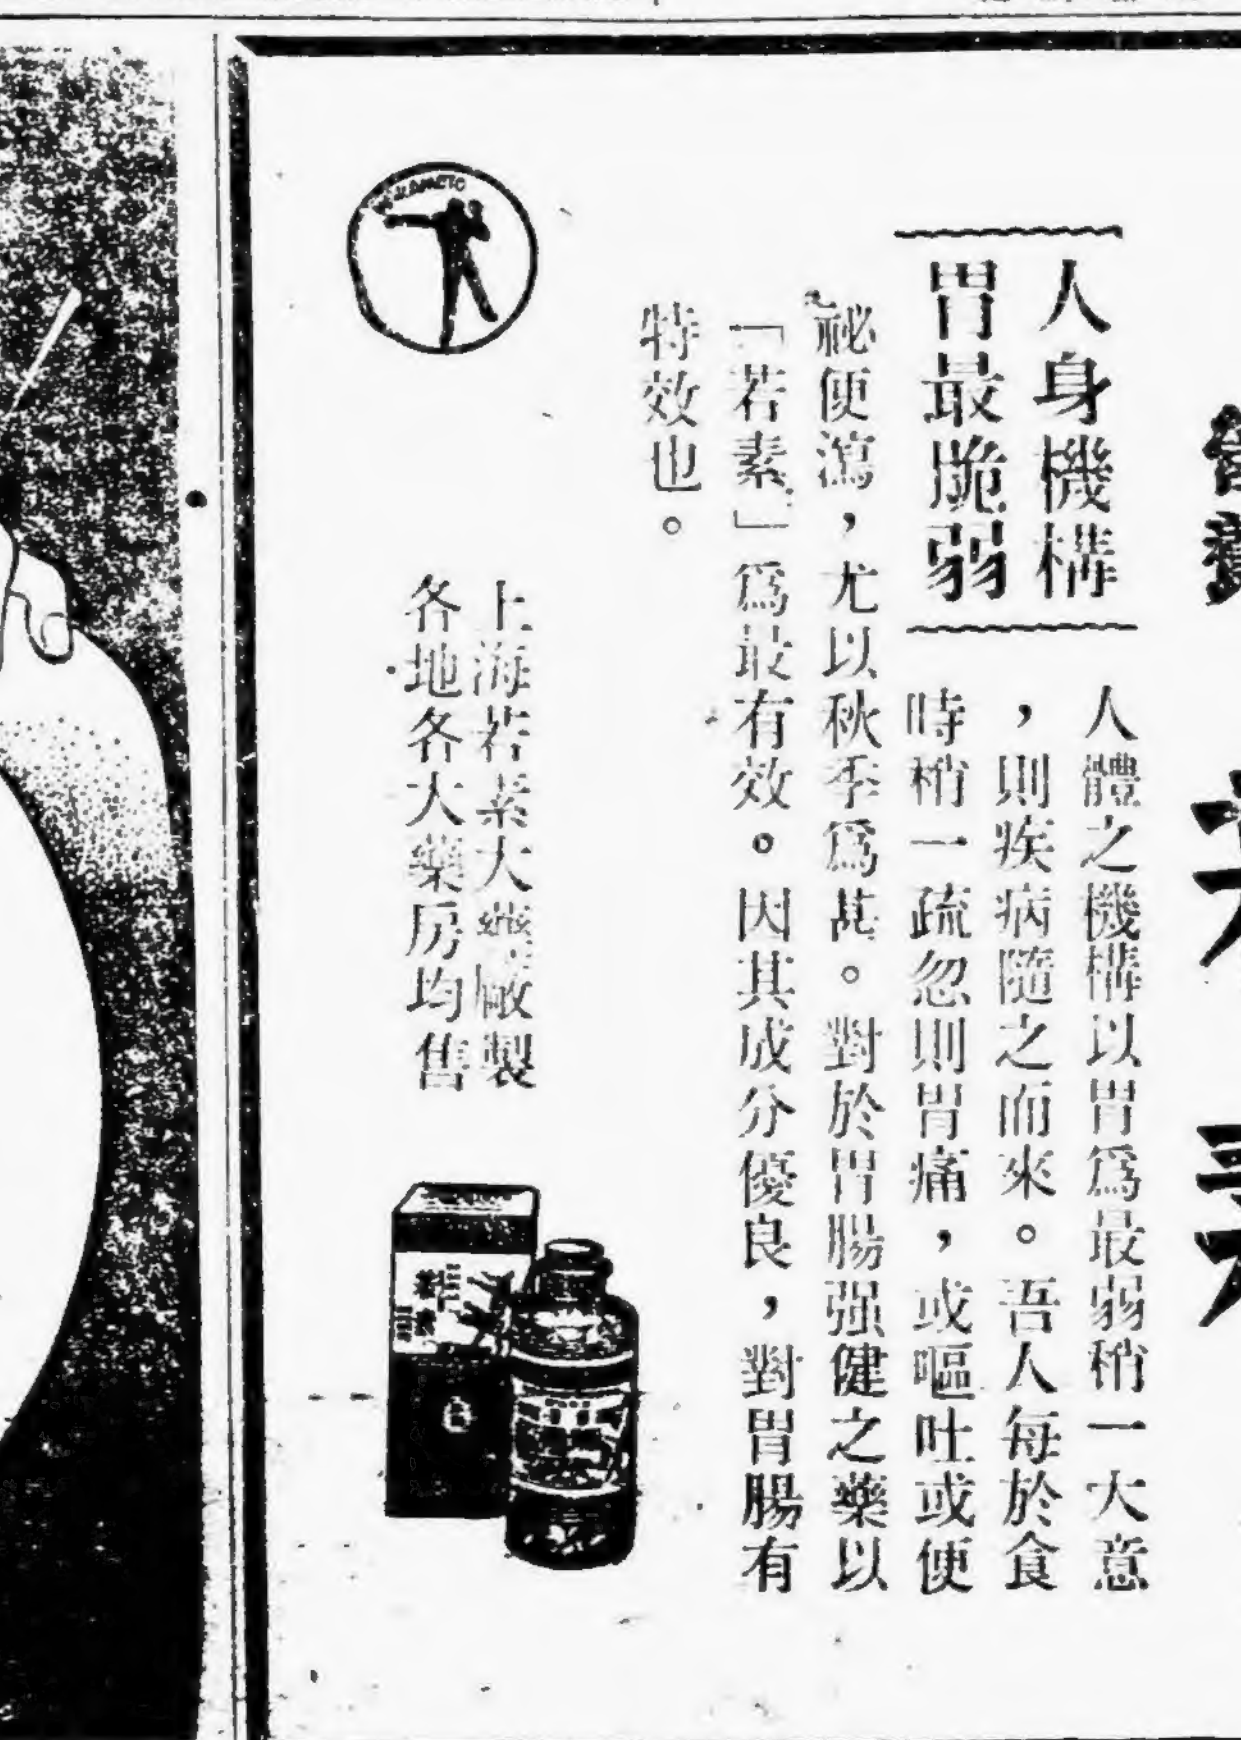 人身機構
胃最脆弱
人體之機構以胃爲最弱稍一大意
，則疾病隨之而來。吾人每於食
時稍一疏忽則胃痛，或嘔吐或便
祕便瀉，尤以秋季爲甚。對於胃腸强健之藥以
「若素」爲最有效。因其成分優良，對胃腸有
特效也。
上海若素大藥廠製
各地各大藥房均售